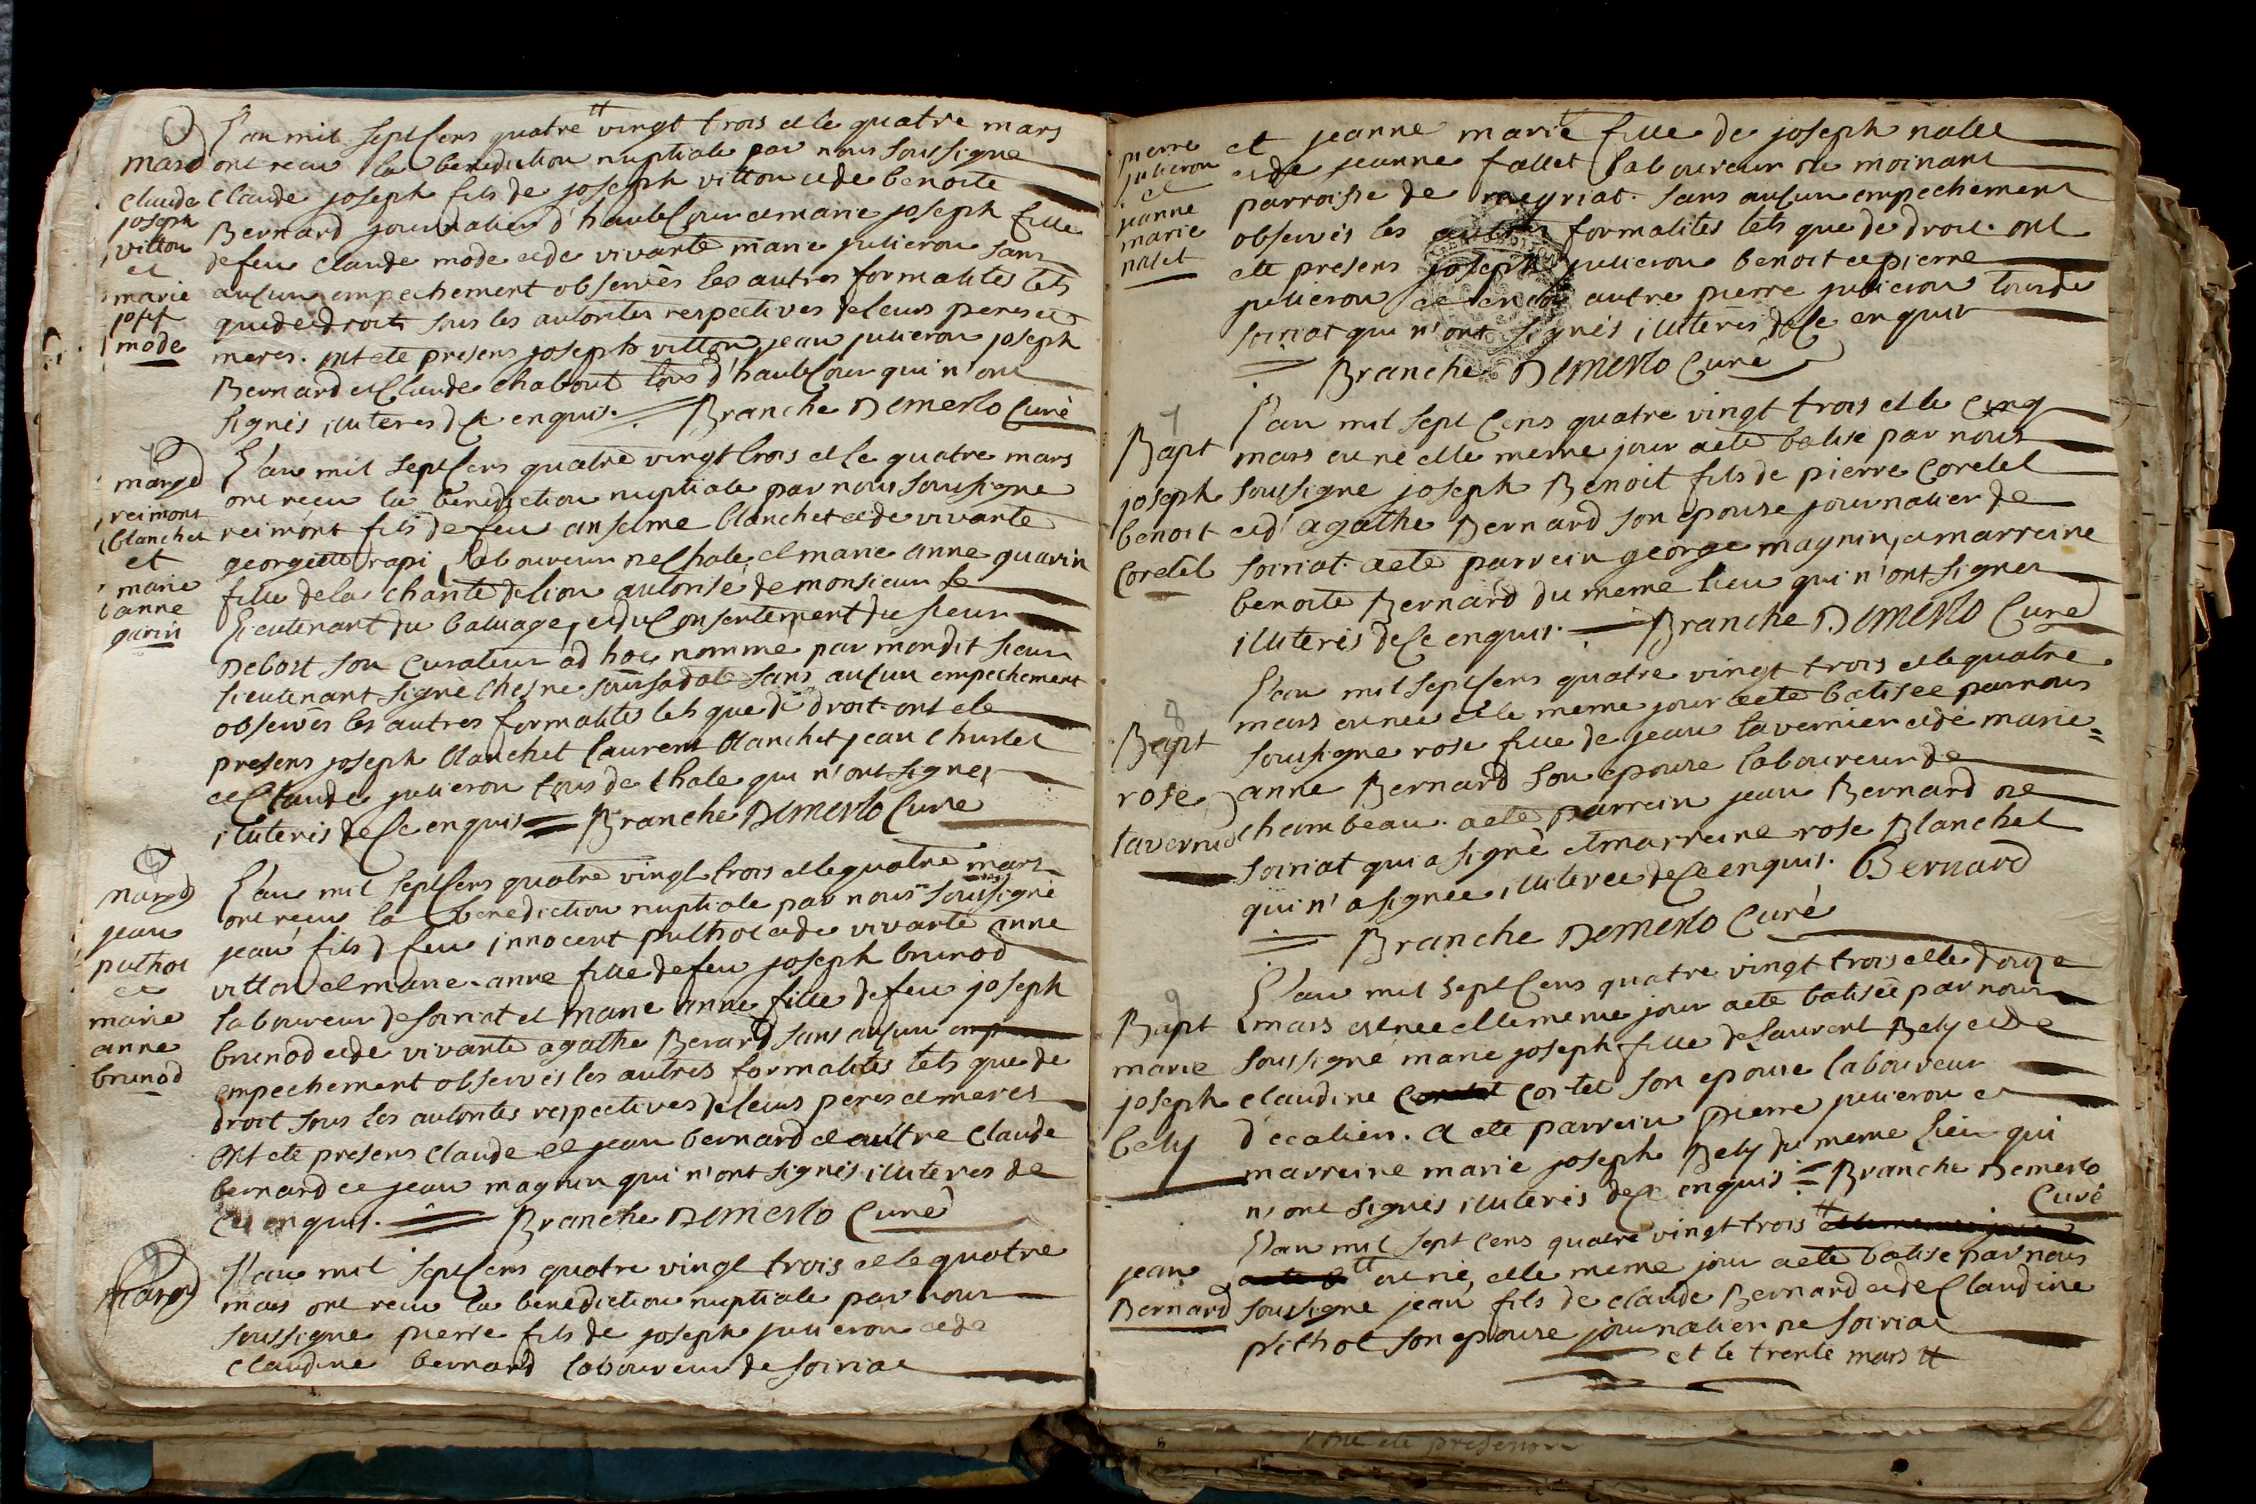 L'an mil sept cens quatre vingt trois et le quatre mars
mard ont recu la benediction nuptiale par nous soussigne
claude joseph vitton et marie josef mode
claude joseph fils de joseph vitton et de benoite
Bernard journalier d'hautecour et marie joseph fille
de feu claude mode et de vivante marie julieron sans
aucun empechement observés les autres formalites tels
que de droit sous les autorites respectives de leurs peres et
meres. ont ete presens joseph vitton jean julieron joseph
Bernard et claude chabout tous d'hautecour qui n'ont
signés illiteres de ce enquis. Branche Demerlo Curé
marge reimont blanchet et marie anne guarin
L'an mil sept cens quatre vingt trois et le quatre mars
ont recu la benediction nuptiale par nous soussigne
reimont fils de feu anselme blanchet et de vivante
georgette rapi laboureur de chale et marie anne guarin
fille de la charité de lion autorisé de monsieur le
lieutenant du bailiage, et du consentement du sieur
Debost son curateur ad hoc nomme par mondit sieur
lieutenant signé chesne sans aucun empechement
observés les autres formalites tels que de droit. ont ete
presens joseph blanchet laurent blanchet jean churlet
et claude julieron tous de chale qui n'ont signes
illiteris de ce enquis Branche Demerlo Curé
marg jean pithot et marie anne brunod
L'an mil sept cens quatre vingt trois et le quatre mars
ont recu la benediction nuptiale par nous soussigné
jean fils de feu innocent pithot et de vivante anne
vitton et marie-anne fille de feu joseph brunod
laboureur de soiriat et marie anne fille de feu joseph
brunod et de vivante agathe Berard sans aucun
empechement observés les autres formalités tels que de
droit sous les autorites respectives de leurs peres et meres
ont ete presens claude et jean bernard et autre claude
bernard et jean magnin qui n'ont signés illiteres de
ce enquis. Branche Demerlo Curé
marg
L'an mil sept cens quatre vingt trois et le quatre
mars ont recu la benediction nuptiale par nous
soussigne pierre fils de joseph julieron et de
claudine bernard laboureur de soiriat
pierre julieron et jeanne marie nalet
et jeanne marie fille de joseph nalet
et de jeanne fallet laboureur de moinant
parroisse de meyriat. sans aucun empechement
observés les autres formalites tels que de droit. ont
ete presens joseph julieron benoit et pierre
julieron et encor autre pierre julieron tous de
soiriat qui n'ont signés illiteres de ce enquis
Branche Demerlo Curé
7
Bapt joseph benoit cordet
L'an mil sept cens quatre vingt trois et le cinq
mars est né et le meme jour a ete batisé par nous
soussigne joseph Benoit fils de pierre cordet
et d'agathe Bernard son epouse journalier de
soiriat. a ete parrein george magnin, et marreine
benoite Bernard du meme lieu qui n'ont signes
illiteris de ce enquis. Branche Demerlo Curé
8
Bapt rose tavernier
L'an mil sept cens quatre vingt trois et le quatre
mars est née et le meme jour a ete batisée par nous
soussigne rose fille de jean tavernier et de marie=
anne Bernard son epouse laboureur de
chambeau. a ete parrein jean Bernard de
soiriat qui a signé et marreine rose Blanchet
qui n'a signée illiteree de ce enquis. Bernard
Branche Demerlo Curé
9
Bapt marie joseph bely
L'an mil sept cens quatre vingt trois et le douze
mars est née et le meme jour a ete batisée par nous
soussigné marie joseph fille de laurent Bely et de
claudine cordet cortet son epouse laboureur
d'ecolien. a ete parrein pierre julieron et
marreine marie joseph Bely du meme lieu qui
n'ont signés illiteris de ce enquis = Branche Demerlo
Curé
jean Bernard
L'an mil sept cens quatre vingt trois
est né, et le meme jour a ete batisé par nous
soussigne jean fils de claude Bernard et de claudine
pithot son epouse journalier de soiriat
et le trente mars